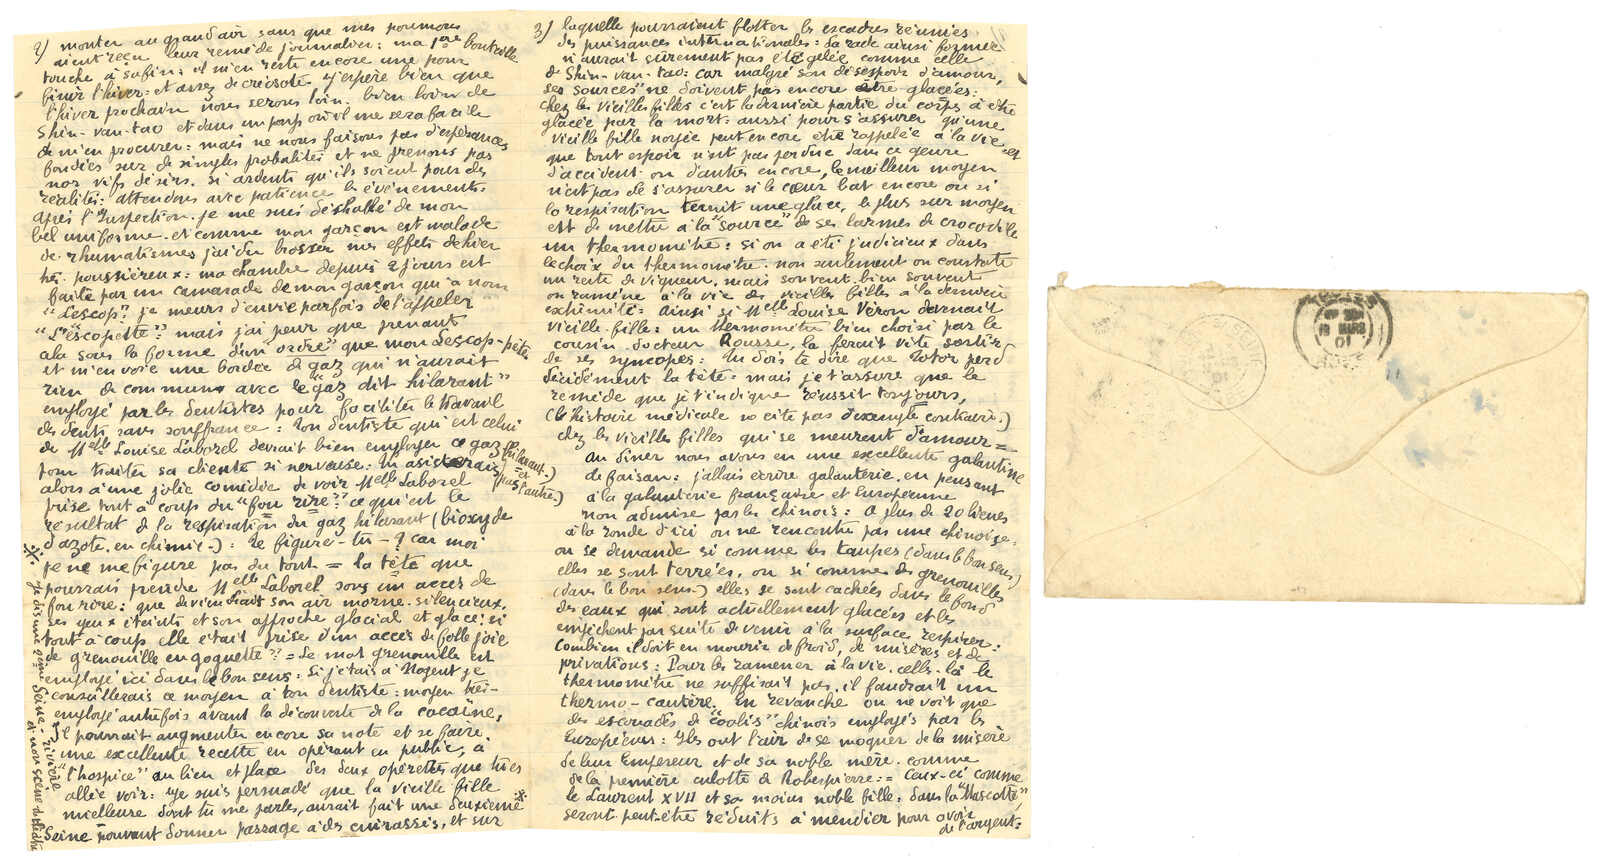 2) monter au grand air sans que mes poumons
aient reçu leur remède journalier: ma 1ère bouteille
touche à sa fin: il m'en reste encore une pour
finir l'hiver: et assez de créosote. J'espère bien que
l'hiver prochain nous serons loin. bien loin de
Shin-van-tao et dans un pays où il me sera facile
de m'en procurer: mais ne nous faisons pas d'espérances
fondées sur de simples probalités et ne prenons pas
nos vifs désirs. si ardents qu'ils soient pour des
réalités: attendons avec patience les événements.
Après l'Inspection. je me suis déshabillé de mon
bel uniforme. et comme mon garçon est malade
de rhumatismes j'ai dû brosser mes effets de hier
très poussiéreux: ma chambre depuis 2 jours est
faite par un camarade de mon garçon qui a nom
"Lescop". je meurs d'envie parfois de l'appeler
"L'escopette" mais j'ai peur que prenant
ala sous la forme d'un "ordre" que mon Lescop-pète
et m'envoie une bordée de gaz qui n'aurait
rien de commun avec le "gaz dit hilarant"
employé par les dentistes pour faciliter le travail
des dents sans souffrance: Ton dentiste qui est celui
de Melle Louise Laborel devrait bien employer ce gaz (hilarant.)
pour traiter sa cliente si nerveuse: tu assisterais (et pas l'autre)
alors à une jolie comédie de voir Melle Laborel
prise tout à coup du "fou rire" ce qui est le
résultat de la respiration du gaz hilarant (bioxyde
d'azote. en chimie.): Te figures-tu-? car moi
je ne me figure pas du tout = la tête que
pourrais prendre Melle Laborel sous un accès de
fou rire: que deviendrait son air morne. silencieux,
ses yeux éteints et son approche glacial et glacé: si
tout à coup elle était prise d'un accès de folle joie
de grenouille en goguette? = Le mot grenouille est
employé ici dans le bon sens: si j'étais à Nogent je
conseillerais ce moyen à ton dentiste: moyen très-
employé autrefois avant la découverte de la cocaïne,
Il pourrait augmenter encore sa note et se faire.
une excellente recette en opérant en public, à
"l'hospice" au lieu et place des deux opérettes que tu es
allée voir: Je suis persuadé que la vieille fille
mielleure dont tu me parles, aurait fait une deuxième
Seine pouvant donner passage à des cuirassés, et sur
* je dis une 2ème Seine, rivière
et non scène de théâtre
3) laquelle pourraient flotter les escadres réunies
des puissances internationales: La rade ainsi formée
n'aurait sûrement pas été gelée comme celle
de Shin-van-tao: car malgré son désespoir d'amour,
ses sources" ne doivent pas encore être glacées:
chez les vieilles filles c'est la dernière partie du corps à être
glacée par la mort. aussi pour s'assurer qu'une
vieille fille noyée peut encore être rappelée à la vie et
que tout espoir n'est pas perdue dans ce genre
d'accident ou d'autres encore, le meilleur moyen
n'est pas de s'assurer si le cœur bat encore ou si
la respiration ternit une glace, le plus sur moyen
est de mettre à la "source" de ses larmes de crocodile
un thermomètre: si on a été judicieux dans
le choix du thermomètre. non seulement on constate
un reste de vigueur, mais souvent. bien souvent
on ramène à la vie des vieilles filles à la dernière
exthimité: Ainsi si Melle Louise Véron devenait
vieille fille: un thermomètre bien choisi par le
cousin. docteur Rousse, la ferait vite sortir
de ses syncopes: Tu dois te dire que Totor perd
décidément la tête: mais je t'assure que le
remède que je t'indique réussit toujours,
(l'histoire médicale ne cite pas d'exemple contraire.)
chez les vieilles filles qui se meurent d'amour =
au dîner nous avons eu une excellente galantine
de faisan: j'allais écrire galanterie. en pensant
à la galanterie française et Européenne
non admise par les chinois: A plus de 20 lieues
à la ronde d'ici on ne rencontre pas une chinoise:
on se demande si comme les taupes (dans le bon sens)
elles se sont terrées, ou si comme des grenouilles
(dans le bon sens.) elles se sont cachées dans le fond
des eaux qui sont actuellement glacées et les
empêchent par suite de venir à la surface respirer:
Combien il doit en mourir de froid, de misères et de
privations: Pour les ramener à la vie. celles-là le
thermomètre ne suffisait pas. il faudrait un
thermo-cautère. En revanche on ne voit que
des escouades de "coolis" chinois employés par les
Européens: Ils ont l'air de se moquer de la misère
de leur Empereur et de sa noble mère. comme
de la première culotte de Robespierre: = Ceux-ci comme
le Laurent XVII et sa moins noble fille: dans la "Mascotte",
seront peut-être réduits à mendier pour avoir
de l'argent:
MARS
01